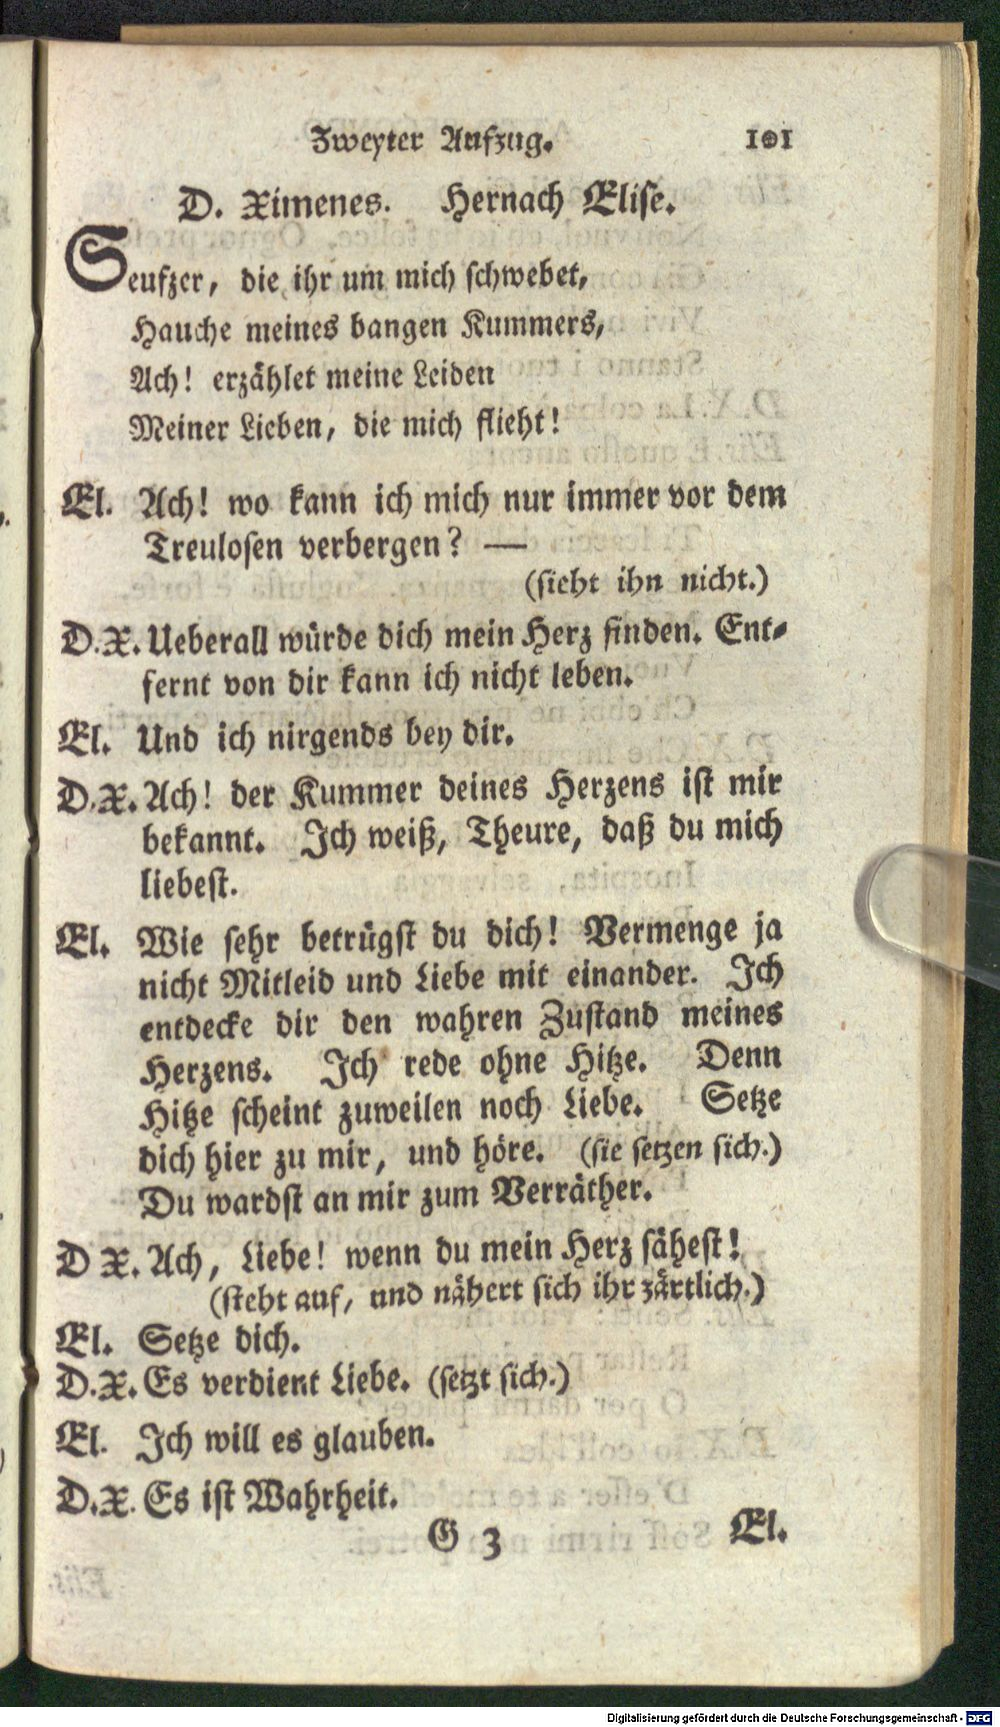 Zweyter Aufzug. 101
D. Ximenes. Hernach Elise.
Seufzer, die ihr um mich schwebet,
Hauche meines bangen Kummers,
Ach! erzählet meine Leiden
Meiner Lieben, die mich flieht!
El. Ach! wo kann ich mich nur immer vor dem
Treulosen verbergen? —
(sieht ihn nicht.)
D.X. Ueberall würde dich mein Herz finden. Ent-
fernt von dir kann ich nicht leben.
El. Und ich nirgends bey dir.
D.X. Ach! der Kummer deines Herzens ist mir
bekannt. Ich weiß, Theure, daß du mich
liebest.
El. Wie sehr betrügst du dich! Vermenge ja
nicht Mitleid und Liebe mit einander. Ich
entdecke dir den wahren Zustand meines
Herzens. Ich rede ohne Hitze. Denn
Hitze scheint zuweilen noch Liebe. Setze
dich hier zu mir, und höre. (sie setzen sich.)
Du wardst an mir zum Verräther.
D X. Ach, Liebe! wenn du mein Herz sähest!
(steht auf, und nähert sich ihr zärtlich.)
El. Setze dich.
D.X. Es verdient Liebe. (setzt sich.)
El. Ich will es glauben.
D.X. Es ist Wahrheit.
G 3 El.
Digitalisierung gefördert durch die Deutsche Forschungsgemeinschaft - DFG